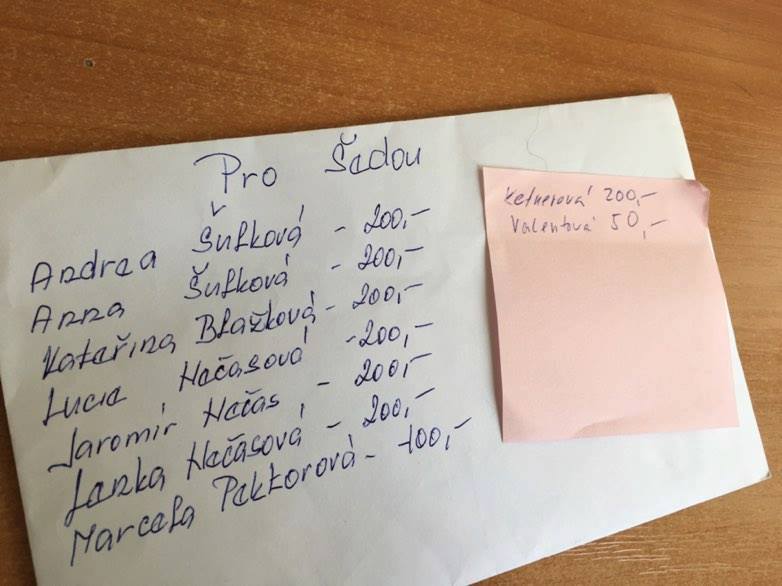 Pro Šedou
Andrea Šulková - 200,-
Anna Šulková - 200,-
Kateřina Blažková - 200,-
Lucie Hačasová - 200,-
Jaromír Hačas, - 200,-
Lenka Hačasová - 200,-
Marcela Pektorová - 100,-
Ketnerová 200,-
Valentová 50,-